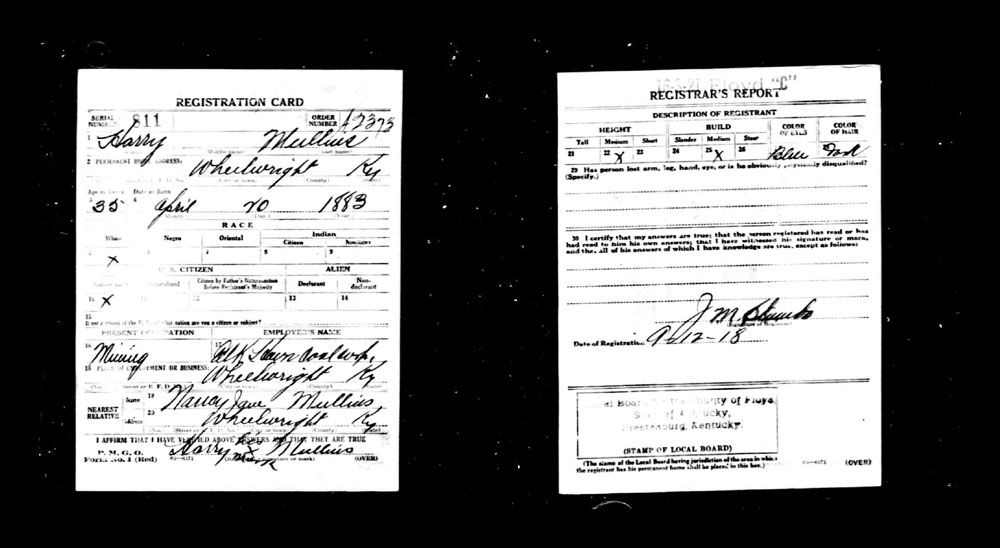 REGISTRATION CARD
SERIAL NUMBER 811 ORDER NUMBER
Harry Mullins
2 PERMANENT HOME ADDRESS:
Wheelwright Ky
Age in Years Date of Birth
35 April 20 1883
RACE
White Negro Oriental Indian
Citizen
X
U. S. CITIZEN ALIEN
Citizen by Father's Naturalization Before Registrant's Majority Declarant Non-declarant
10 X 11 12 13 14
15
If not a citizen of the U. S., of what nation are you a citizen or subject?
PRESENT OCCUPATION EMPLOYER'S NAME
16 Mining 17
18 PLACE OF EMPLOYMENT OR BUSINESS:
Wheelwright Ky
NEAREST RELATIVE Name 19 Nancy Jane Mullins
Address 20 Wheelwright Ky
I AFFIRM THAT I HAVE VERIFIED ABOVE ANSWERS AND THAT THEY ARE TRUE
P. M. G. O.
Form No. 1 (Red) Harry his X mark Mullins (OVER)
16-3-21 Floyd "C"
REGISTRAR'S REPORT
DESCRIPTION OF REGISTRANT
HEIGHT BUILD COLOR OF EYES COLOR OF HAIR
Tall Medium Short Slender Medium Stout
21 22 X 23 24 25 X 26 Blue Dark
29 Has person lost arm, leg, hand, eye, or is he obviously physically disqualified?
(Specify.)
30 I certify that my answers are true; that the person registered has read or has
had read to him his own answers; that I have witnessed his signature or mark,
and that all of his answers of which I have knowledge are true, except as follows:
J M
(Signature of Registrar)
Date of Registration 9-12-18
Local Board for the County of Floyd,
State of Kentucky,
Prestonsburg, Kentucky.
(STAMP OF LOCAL BOARD)
(The stamp of the Local Board having jurisdiction of the area in which
the registrant has his permanent home shall be placed in this box.)
(OVER)